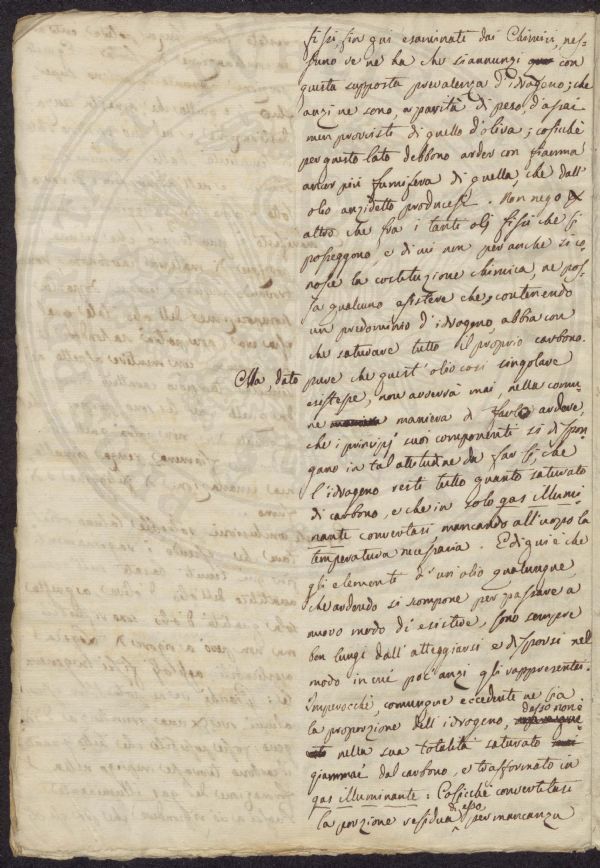 fissi, fin qui esaminati dai Chimici, nes-
suno ve ne ha che si annunzi con
questa supposta prevalenza d'idrogeno; che
anzi ne sono, a parità di peso, d'assai
men provvisti di quello d'oliva; cosichè
per questo lato debbono arder con fiamma
ancor più fumifera di quella, che dall'
olio anzidetto producesi. Non nego
altro che fra i tanti olj fissi che si
posseggono, e di cui non per anche si co-
nosce la costituzione chimica, ne pos-
sa qualcuno esistere che, contenendo
un predominio d'idrogeno, abbia con
che saturare tutto il proprio carbono.
Ma, dato pure che quest'olio così singolare
esistesse, non avverrà mai, nella comu-
ne maniera di farlo ardere,
che i principj suoi componenti si dispon-
gano in tal attitudine da far sì, che
l'idrogeno resti tutto quanto saturato
di carbono, e che in solo gas illumi-
nante convertasi mancando all'uopo la
temperatura necessaria. E di qui è che
gli elementi d'un olio qualunque,
che ardendo si scompone per passare a
nuovo modo di esistere, sono sempre
ben lungi dall'atteggiarsi e disporsi nel
modo in cui poc'anzi gli rappresentai.
Imperocchè, comunque eccedente ne sia
la proporzione dell'idrogeno, desso non è
nella sua totalità saturato
giammai dal carbono, e trasformato in
gas illuminante: Cosicchè convertitasi
la porzione residua d'esso per mancanza